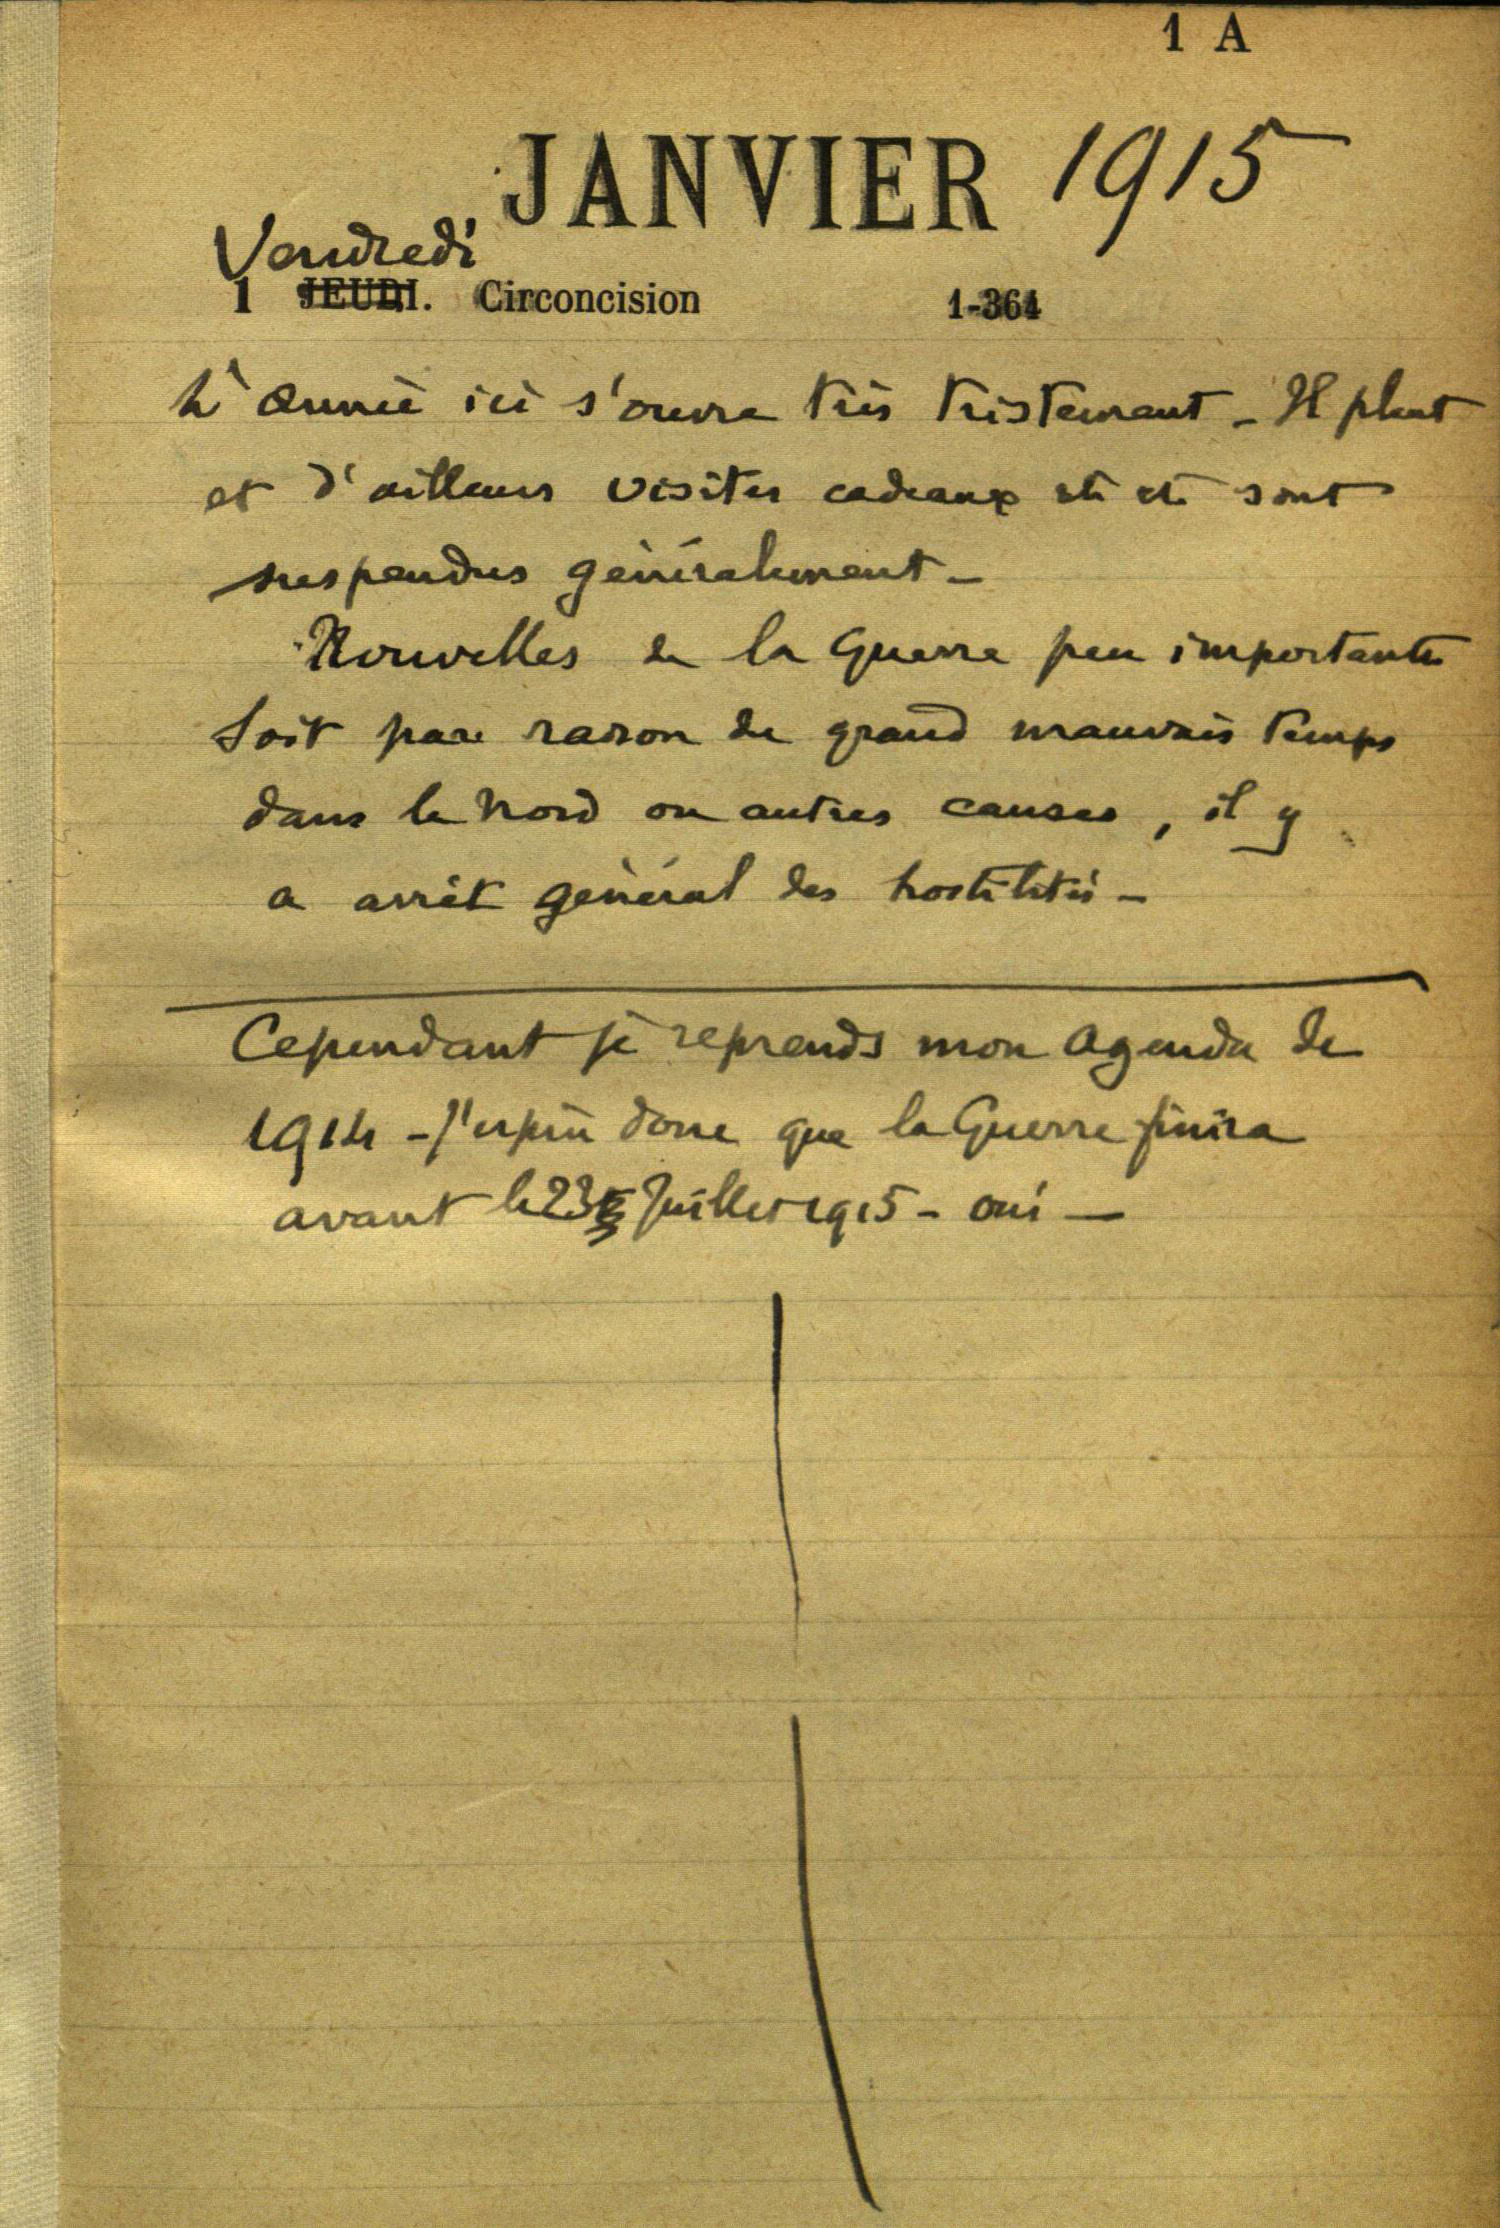 1 A
JANVIER 1915
Vendredi
1 JEUDI. Circoncision 1-364
L'année ici s'ouvre très tristement - Il pleut
et d'ailleurs visites cadeaux etc etc sont
suspendus généralement -
Nouvelles de la Guerre peu importantes
Soit par raison de grand mauvais temps
dans le Nord ou autres causes, il y
a arrêt général des hostilités -
Cependant je reprends mon agenda de
1914 - J'espère donc que la Guerre finira
avant le 23 Juillet 1915 - oui -